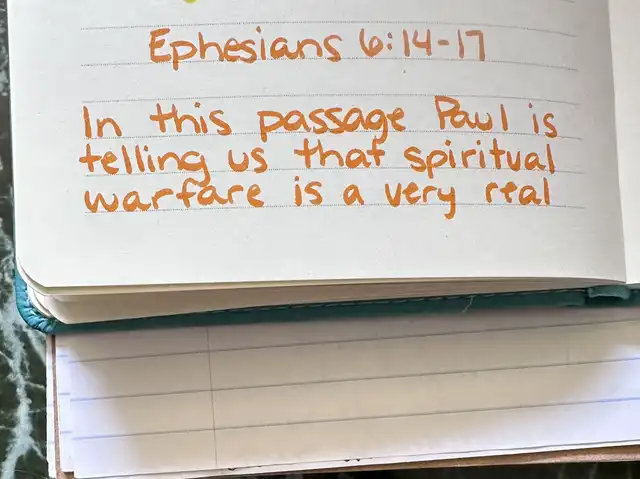 Ephesians 6:14-17
In this passage Paul is
telling us that spiritual
warfare is a very real